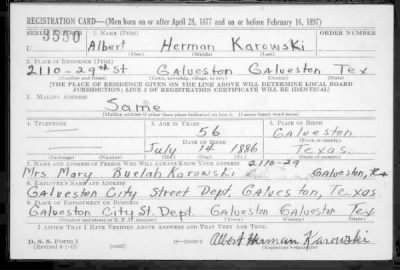 REGISTRATION CARD—(Men born on or after April 28, 1877 and on or before February 16, 1897)
SERIAL NUMBER 1. NAME (Print) ORDER NUMBER
3550 Albert Herman Karowski
(First) (Middle) (Last)
2. PLACE OF RESIDENCE (Print)
2110-29th St Galveston Galveston Tex
(Number and street) (Town, township, village, or city) (County) (State)
[THE PLACE OF RESIDENCE GIVEN ON THE LINE ABOVE WILL DETERMINE LOCAL BOARD
JURISDICTION; LINE 2 OF REGISTRATION CERTIFICATE WILL BE IDENTICAL]
3. MAILING ADDRESS
Same
[Mailing address if other than place indicated on line 2. If same insert word same]
4. TELEPHONE 5. AGE IN YEARS 6. PLACE OF BIRTH
56 Galveston
DATE OF BIRTH (Town or county)
July 14 1886 Texas
(Exchange) (Number) (Mo.) (Day) (Yr.) (State or country)
7. NAME AND ADDRESS OF PERSON WHO WILL ALWAYS KNOW YOUR ADDRESS 2110-29
Mrs Mary Buelah Karowski Galveston, Tex
8. EMPLOYER'S NAME AND ADDRESS
Galveston City Street Dept. Galveston, Texas.
9. PLACE OF EMPLOYMENT OR BUSINESS
Galveston City St. Dept. Galveston Galveston Tex
(Number and street or R. F. D. number) (Town) (County) (State)
I AFFIRM THAT I HAVE VERIFIED ABOVE ANSWERS AND THAT THEY ARE TRUE.
D. S. S. Form 1 Albert Herman Karowski
(Revised 4-1-42) (over) (Registrant's signature)